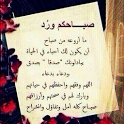 صباحكم ورد
ما أروعه من صباح
أن يكون لك أحباء في الحياة
يبادلونك "صدقا" بصدق
ودعاء بدعاء
اللهم وفقهم واحفظهم في حياتهم
وبارك لي في عمرهم وأرزاقهم
صباح كله أمل وتفاؤل وانشراح